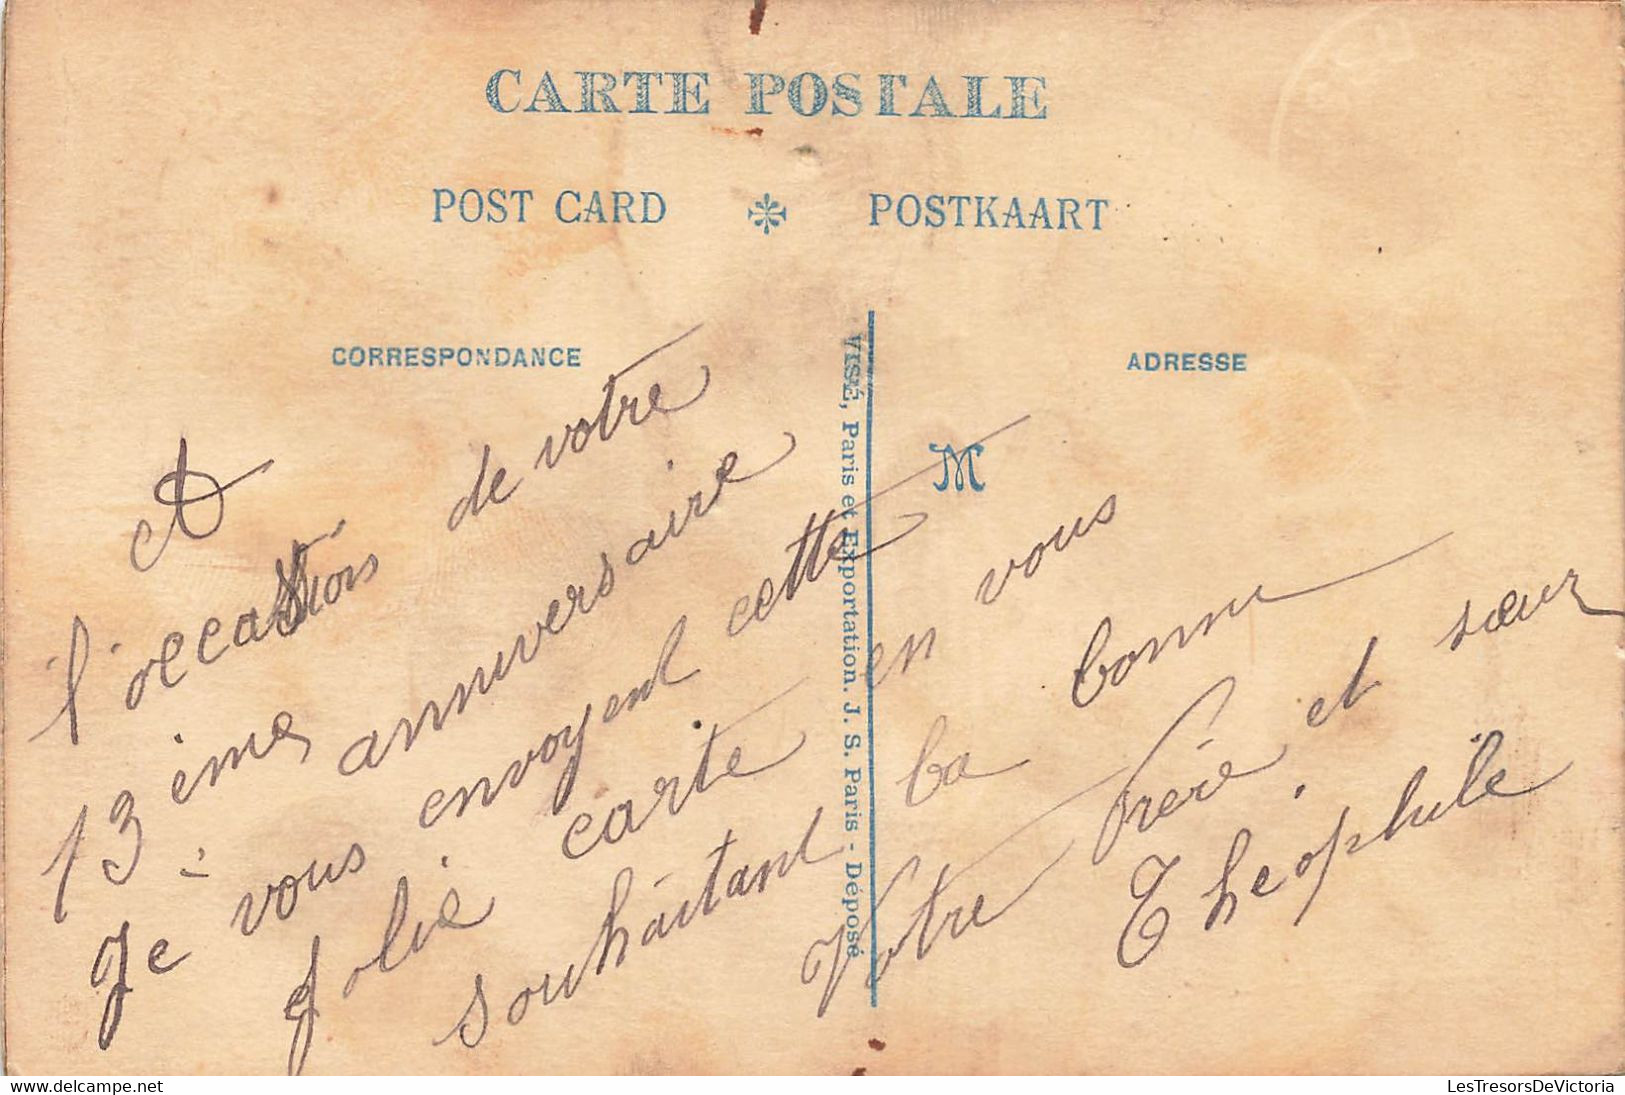 CARTE POSTALE
POST CARD ✻ POSTKAART
CORRESPONDANCE
ADRESSE
M
VISÉ, Paris et Exportation. J. S. Paris - Déposé
A
l'occastions de votre
13 ième anniversaire
Je vous envoyent cette
Jolie carte en vous
souhaitant la bonne
Votre Frère et sœur
Théophile
LesTresorsDeVictoria
delcampe.net